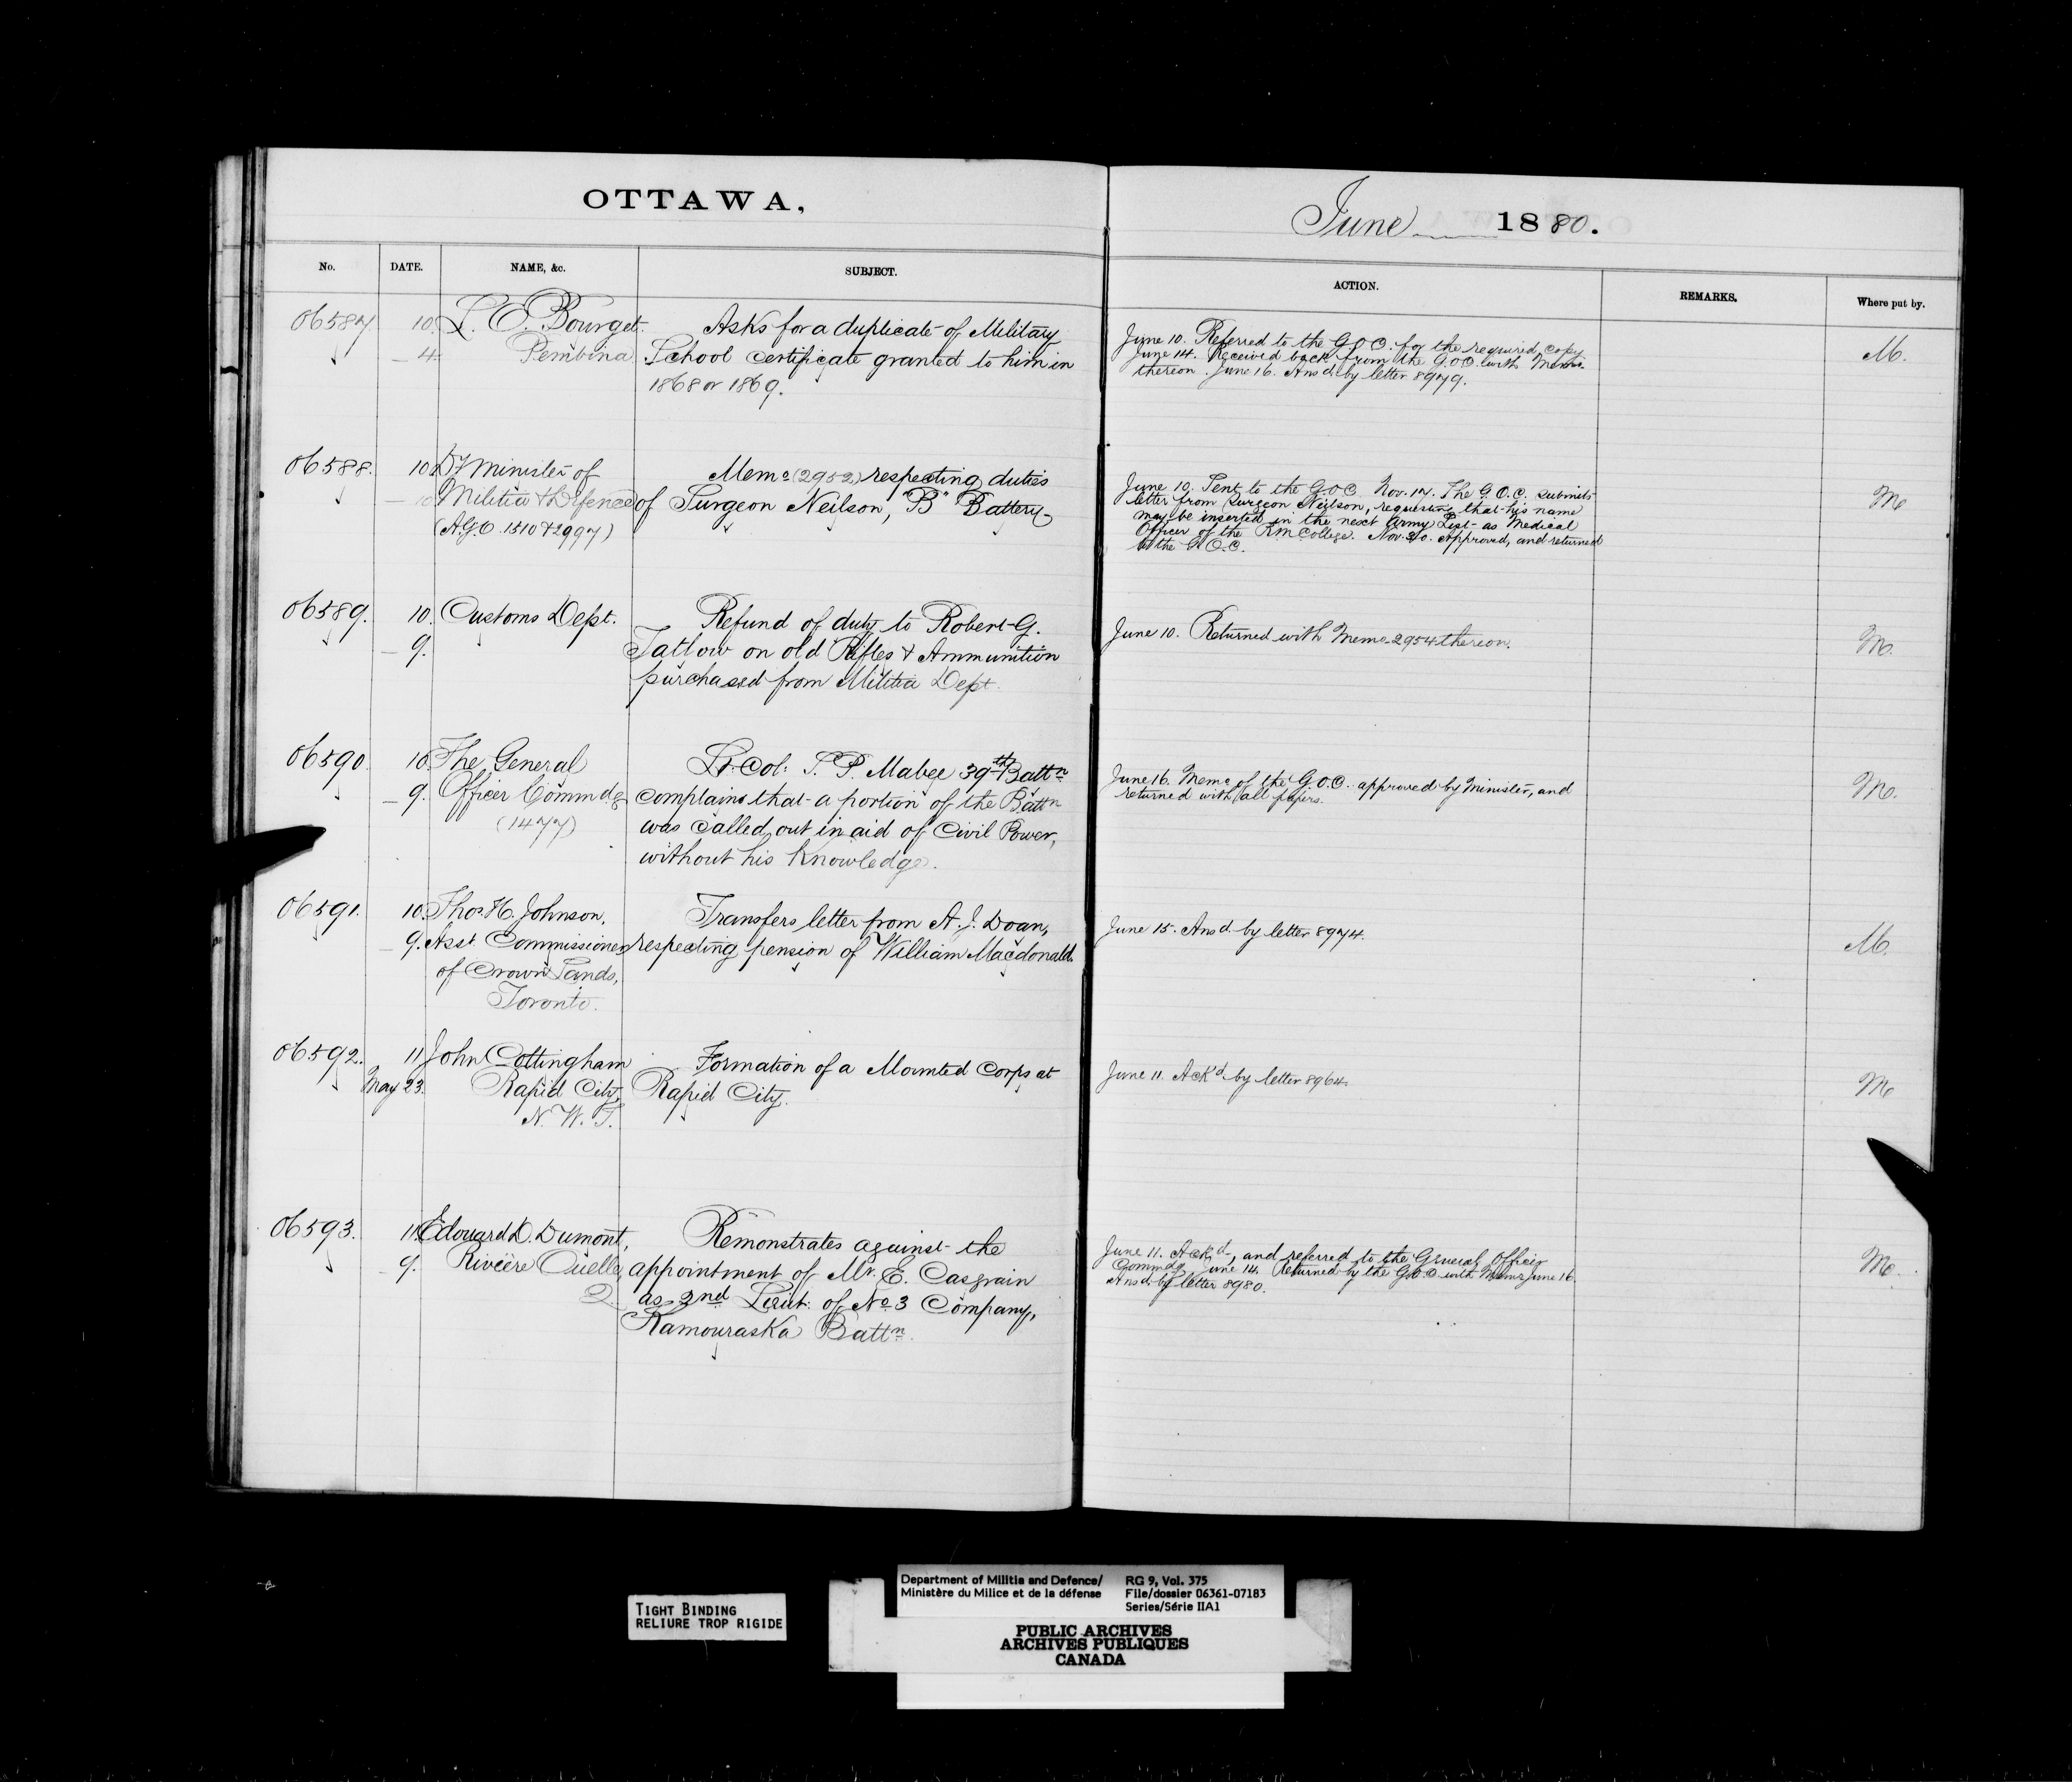 OTTAWA,
June 1880.
No.
DATE.
NAME, &c.
SUBJECT.
ACTION.
REMARKS.
Where put by.
06587
10.
4.
L. O. Bourget.
Pembina
Asks for a duplicate of Military
School certificate granted to him in
1868 or 1869.
June 10. Referred to the G.O.C. for the required copy
June 14. Received back from the G.O.C. with Memo
thereon. June 16. Ansd. by letter 8979.
M.
06588.
10
10
Dy Minister of
Militia & Defence
(A.G.O. 1510 & 2997)
Memo (2952) respecting duties
of Surgeon Neilson, "B" Battery
June 10. Sent to the G.O.C. Nov. 17. The G.O.C. submits
letter from Surgeon Neilson, requesting that his name
may be inserted in the next Army List as Medical
Officer of the R.M. College. Nov. 20. Approved, and returned
to the G.O.C.
M
06589.
10.
9.
Customs Dept.
Refund of duty to Robert G.
Tatlow on old Rifles & Ammunition
purchased from Militia Dept.
June 10. Returned with Memo 2954 thereon.
M.
06590
10.
9.
The General
Officer Commdg
(1477)
Lt. Col: S. P. Mabee 39th Battn
complains that a portion of the Battn
was called out in aid of Civil Power,
without his knowledge.
June 16. Memo of the G.O.C. approved by Minister, and
returned with all papers.
M.
06591.
10.
9.
Thos. H. Johnson,
Asst Commissioner
of Crown Lands,
Toronto.
Transfers letter from A. J. Doan,
respecting pension of William Macdonald.
June 15. Ansd. by letter 8974.
M.
06592.
11
May 23.
John Cottingham
Rapid City,
N. W. T.
Formation of a Mounted Corps at
Rapid City.
June 11. Ack'd by letter 8964.
M
06593.
11
9.
Edouard D. Dumont,
Rivière Ouelle,
Q.
Remonstrates against the
appointment of Mr. E. Casgrain
as 2nd Lieut: of No. 3 Company,
Kamouraska Battn.
June 11. Ack'd, and referred to the General Officer
Commdg June 14. Returned by the G.O.C. with Memo June 16.
Ansd. by letter 8980.
M.
TIGHT BINDING
RELIURE TROP RIGIDE
Department of Militia and Defence/
Ministère du Milice et de la défense
RG 9, Vol. 375
File/dossier 06361-07183
Series/Série IIA1
PUBLIC ARCHIVES
ARCHIVES PUBLIQUES
CANADA